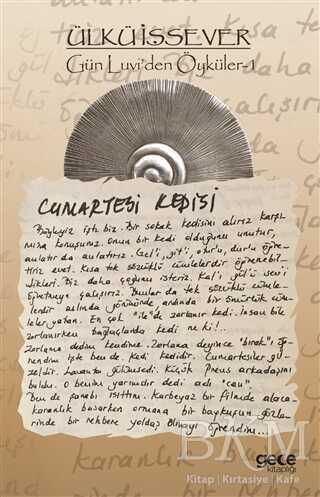 ÜLKÜ İSSEVER
Gün Luvi'den Öyküler-1
CUMARTESİ KEDİSİ
Böyleyiz işte biz. Bir sokak kedisini alırız karşı-
mıza konuşuruz. Onun bir kedi olduğunu unutur,
anlatır da anlatırız. Gel'i, git'i, otur'u, dur'u öğre-
tiriz evet. Kısa tek sözcüklü cümlelerdir öğrenebil-
dikleri. Biz daha çoğunu isteriz. Kal'ı gül'ü sev'i
öğretmeye çalışırız. Bunlar da tek sözcüklü cümle-
lerdir aslında görünürde ardında bir ömürlük cüm-
leler yatan. En çok "ile"de zorlanır kedi. İnsan bile
zorlanırken bağlaçlarda kedi ne ki!..
Zorlama dedim kendime. Zorlama deyince "bırak"ı öğ-
rendim işte ben de. Kedi kedidir. Cumartesiler gü-
zeldir. Lavanta gülümsedi. Küçük Pneus arkadaşını
buldu. O benim yarımdır dedi adı "can".
Ben de sanabı ısıttım. Karbeyaz bir filmde alaca-
karanlık basarken ormana bir baykuşun gözle-
rinde bir rehbere yoldaş olmayı öğrendim...
BAM
Kitap | Kırtasiye | Kafe
gece
kitaplığı